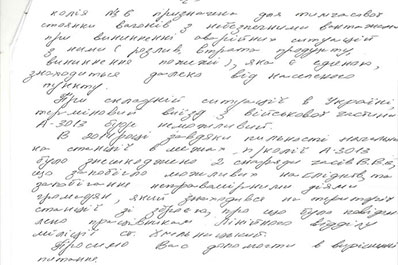 колія №6 призначена для тимчасової
стоянки вагонів з небезпечними вантажами
при виникненні аварійних ситуацій
з ними (розлив, втрата продукту,
виникнення пожежі), яка є єдиною,
знаходиться далеко від населеного
пункту.
При складній ситуації в Україні,
терміновий виїзд з військової частини
А-3013 буде неможливий.
В 2014 році завдяки пильності
на станції в межах п/колії А-3013
було знешкоджено 2 снаряди часів ВВв,
що запобігло можливих наслідків та
запобігання неправомірними діями
громадян, який знаходився на території
станції зі зброєю, про що було повідом
лено працівникам Лінійного відділу
міліції ст. Хмельницький.
Просимо Вас допомогти в вирішенні
питання.